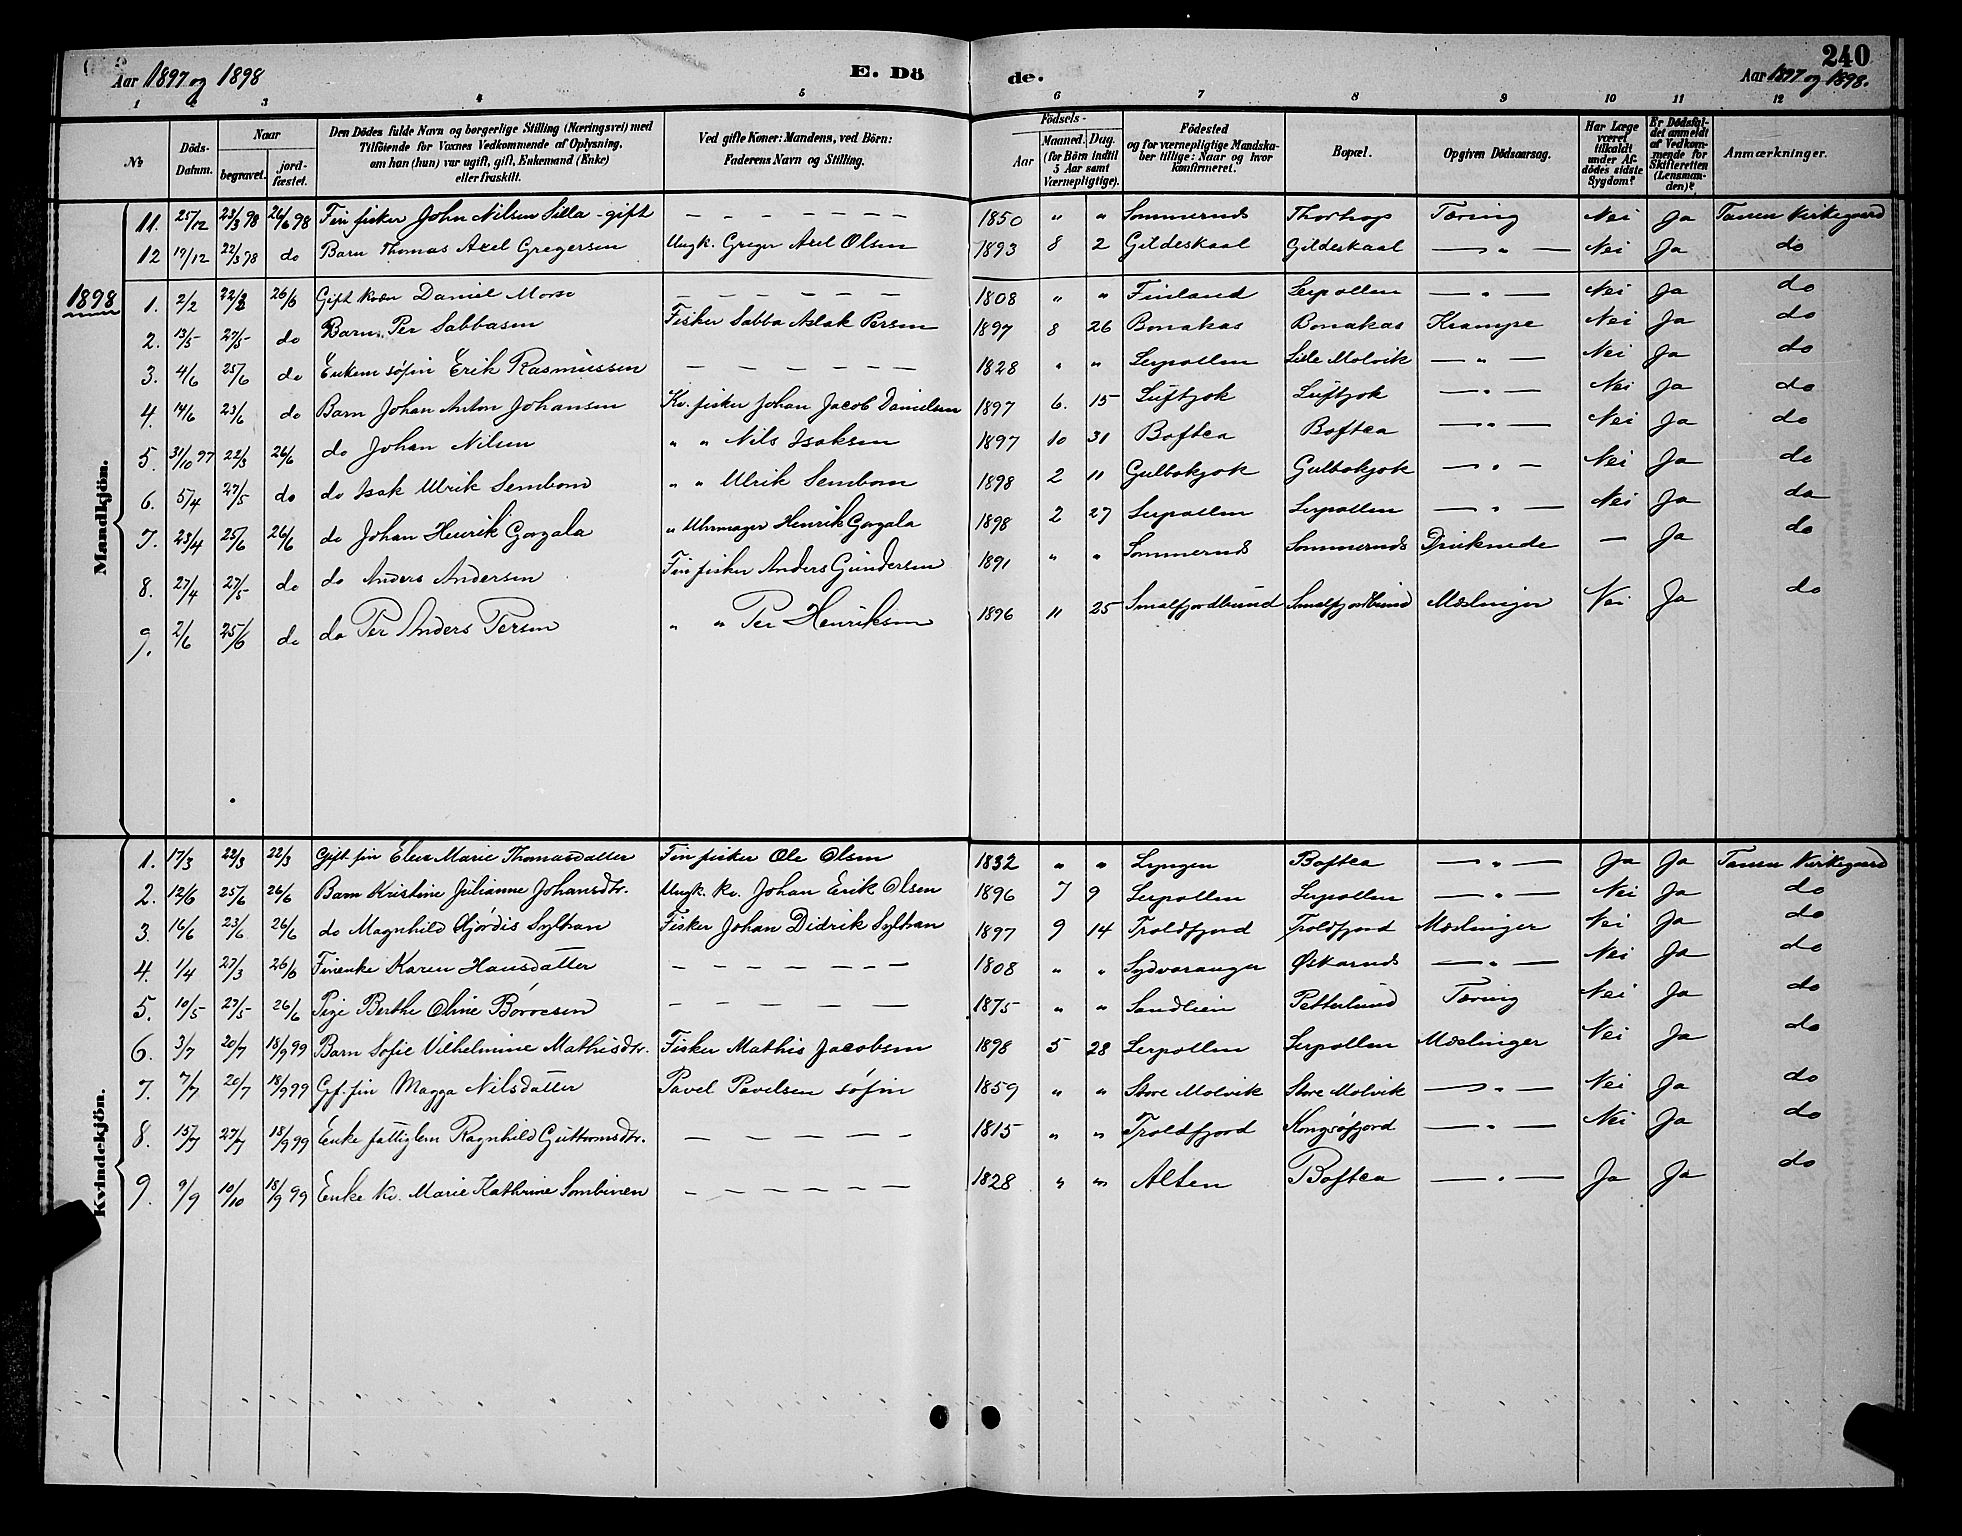 240
Aar 1897 og 1898 E. Dö de. Aar 1897 og 1898.
1 2 3 4 5 6 7 8 9 10 11 12
No
Döds-Datum.
Naar
begravet.
jord-fæstet.
Den Dödes fulde Navn og borgerlige Stilling (Næringsvei) med
Tilföiende for Voxnes Vedkommende af Oplysning,
om han (hun) var ugift, gift, Enkemand (Enke)
eller fraskilt.
Ved gifte Koner: Mandens, ved Börn:
Faderens Navn og Stilling.
Födsels-
Aar
Maaned. Dag.
(for Börn indtil
5 Aar samt
Værnepligtige).
Födested
og for værnepligtige Mandska-
ber tillige: Naar og hvor
konfirmeret.
Bopæl.
Opgiven Dödsaarsag.
Har Læge
været
tilkaldt
under Af-
dödes sidste
Sygdom?
Er Dödsfal-
det anmeldt
af Vedkom-
mende for
Skifteretten
(Lensman-
den)?
Anmærkninger.
Mandkjön.
11. 25/12 23/3 98 26/6 98 Fin fisker John Nilsen Silla - gift — — — — — — — 1850 " " Sommernes Thorhop Tæring Nei Ja Tanen Kirkegaard
12 19/12 22/3 98 do Barn Thomas Axel Gregersen Ungk. Greger Axel Olsen 1893 8 2 Gildeskaal Gildeskaal — " — Nei Ja do
1898
1. 2/2 22/3 26/6 Gift kvæn Daniel Morso — — — — — — 1808 " " Finland Lerpollen — " — Nei Ja do
2. 13/5 27/5 do Barn. Per Sabbasen Fisker Sabba Aslak Persen 1897 8 26 Bonakas Bonakas Krampe Nei Ja do
3. 4/6 25/6 do Enkem søfin Erik Rasmussen — — — — — — 1828 " " Lerpollen Lille Molvik — " — Nei Ja do
4. 14/6 23/6 do Barn Johan Anton Johansen Kv. fisker Johan Jacob Danielsen 1897 6. 15 Luftjok Luftjok — " — Nei Ja do
5. 31/10 97 22/3 26/6 do Johan Nilsen " " Nils Isaksen 1897 10 31 Boftca Boftca — " — Nei Ja do
6. 5/4 27/5 do do Isak Ulrik Sembom " " Ulrik Sembom 1898 2 11 Gulbokjok Gulbokjok — " — Nei Ja do
7. 23/4 25/6 26/6 do Johan Henrik Gorgala " Uhrmager Henrik Gorgala 1898 2 27 Lerpollen Lerpollen — " — Nei Ja do
8. 27/4 27/5 do do Anders Andersen Fin fisker Anders Gundersen 1891 " " Sommernes Sommernes Druknede — Ja do
9. 2/6 25/6 do do Per Anders Persen " " Per Henriksen 1896 11 25 Smalfjordbund Smalfjordbund Mæslinger Nei Ja do
Kvindekjön.
1. 17/3 22/3 22/3 Gift fin Elen Marie Thomasdatter Fin fisker Ole Olsen 1832 " " Lyngen Boftca — " — Ja Ja Tanen Kirkegaard
2. 12/6 25/6 26/6 Barn Kristine Julianne Johansdtr. Ungk. kv. Johan Erik Olsen 1896 7 9 Lerpollen Lerpollen — " — Nei Ja do
3. 16/6 23/6 26/6 do Magnhild Hjørdis Syltran Fisker Johan Didrik Syltran 1897 9 14 Troldfjord Troldfjord Mæslinger Nei Ja do
4. 1/4 27/3 26/6 Finenke Karen Hansdatter — — — — — — — 1808 " " Sydvaranger Øskarnes — " — Nei Ja do
5. 10/5 27/5 26/6 Pige Berthe Oline Børresen — — — — — — 1875 " " Sandlien Petterlund Tæring Nei Ja do
6. 3/7 20/7 18/9 99 Barn Sofie Vilhelmine Mathisdtr. Fisker Mathis Jacobsen 1898 5 28 Lerpollen Lerpollen Mæslinger Nei Ja do
7. 7/7 20/7 18/9 99 Gf. fin Magga Nilsdatter Pavel Pavelsen søfin 1859 " " Store Molvik Store Molvik — " — Nei Ja do
8. 15/7 27/7 18/9 99 Enke fattiglem Ragnhild Guttormsdtr. — — — — — — 1815 " " Troldfjord Kongsøfjord — " — Nei Ja do
9. 9/9 10/10 18/9 99 Enke kv. Marie Kathrine Sombinen — — — — — — 1828 " " Alten Boftca — " — Ja Ja do